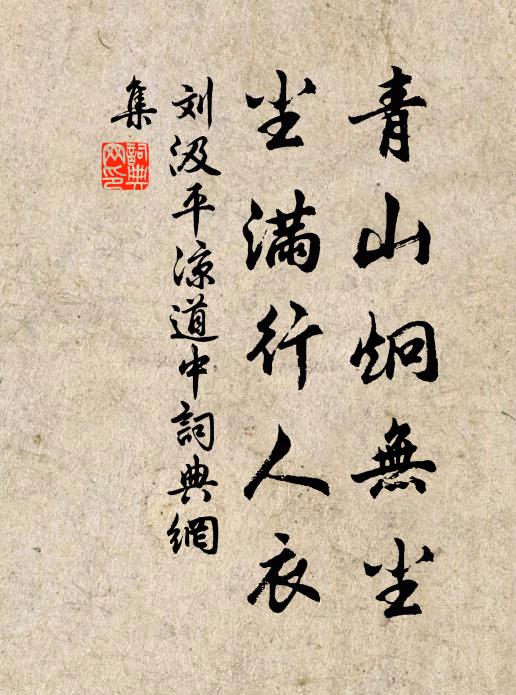 青山炯無尘
尘滿行人衣
刘汲平凉道中詞典網
集
詞典
网印